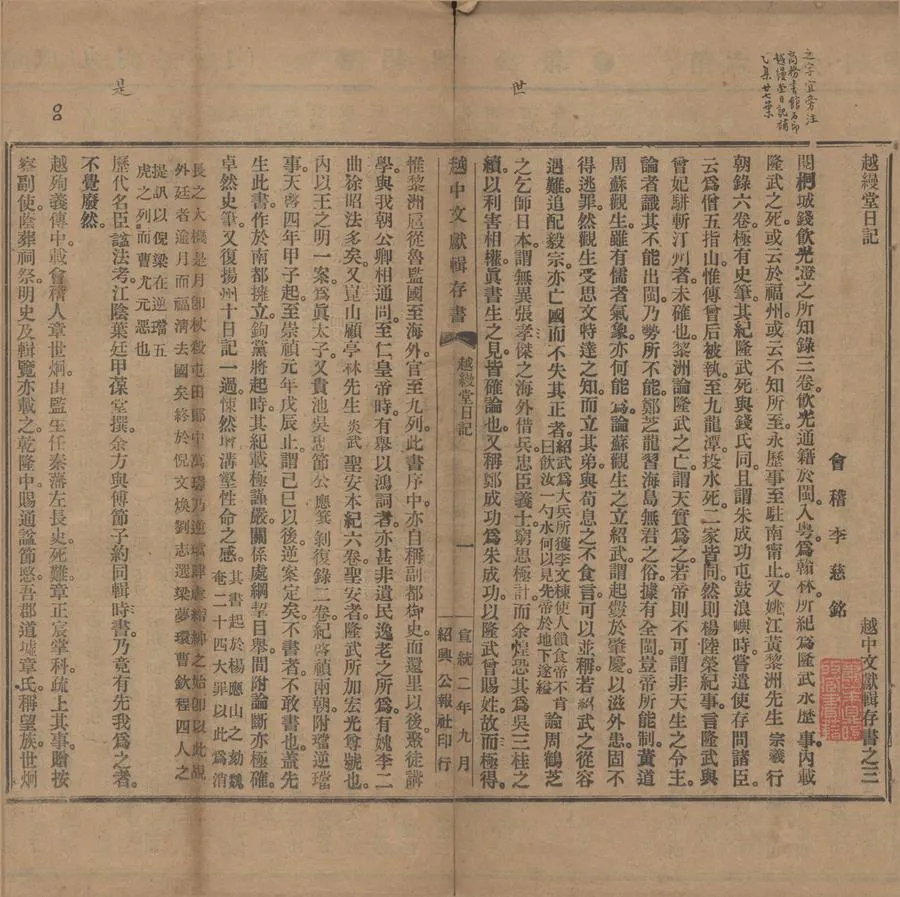 之字宜旁注
商務書館石印
越縵堂日記補
乙集廿七葉
世
是
越縵堂日記
越中文獻輯存書之三
會稽李慈銘
閱桐城錢飲光澄之所知錄三卷飲光通籍於閩入粵爲翰林所紀爲隆武永歷事內載
隆武之死或云於福州或云不知所至永歷事至駐南甯止又姚江黃黎洲先生宗羲行
朝錄六卷極有史筆其紀隆武死與錢氏同且謂朱成功屯鼓浪嶼時嘗遣使存問諸臣
云爲僧五指山惟傳曾后被執至九龍潭投水死二家皆同然則楊陸榮紀事言隆武與
曾妃駢斬汀州者未確也黎洲論隆武之亡謂天實爲之若帝則不可謂非天生之令主
論者譏其不能出閩乃勢所不能鄭芝龍習海島無君之俗據有全閩豈帝所能制黃道
周蘇觀生雖有儒者氣象亦何能爲論蘇觀生之立紹武謂起釁於肇慶以滋外患固不
得逃罪然觀生受思文特達之知而立其弟與荀息之不食言可以並稱若紹武之從容
遇難追配毅宗亦亡國而不失其正者紹武爲大兵所獲李文棟使人饋食帝不肯曰飲汝一勺水何以見先帝於地下遂縊論周鶴芝
之乞師日本謂無異張孝傑之海外借兵忠臣義士窮思極計而余煌恐其爲吳三桂之
續以利害相權眞書生之見皆確論也又稱鄭成功爲朱成功以隆武曾賜姓故而極得
越中文獻輯存書
越縵堂日記
一
宣統二年九月
紹興公報社印行
惟黎洲扈從魯監國至海外官至九列此書序中亦自稱副都御史而還里以後聚徒講
學與我朝公卿相通問至仁皇帝時有舉以鴻詞者亦甚非遺民逸老之所爲有媿李二
曲徐昭法多矣又崑山顧亭林先生炎武聖安本紀六卷聖安者隆武所加宏光尊號也
內以王之明一案爲眞太子又貴池吳忠節公應箕剝復錄二卷紀啓禎兩朝附璫逆璫
事天啓四年甲子起至崇禎元年戊辰止謂己巳以後逆案定矣不書者不敢書也蓋先
生此書作於南都擁立鉤黨將起時其紀載極謹嚴關係處綱挈目舉間附論斷亦極確
卓然史筆又復揚州十日記一過悚然增溝壑性命之感其書起於楊應山之劾魏奄二十四大罪以此爲消
長之大機是月卽杖殺屯田郎中萬璟乃逆璫肆虐縉紳之始卽以此覘
外廷者逾月而福清去國矣終於倪文煥劉志選梁夢環曹欽程四人之
提訊以倪梁在逆璫五
虎之列而曹尤元惡也
歷代名臣諡法考江陰葉廷甲葆堂撰余方與傅節子約同輯時書乃竟有先我爲之者
不覺廢然
越殉義傳中載會稽人章世炯由監生任秦藩左長史死難章正宸掌科疏上其事贈按
察副使蔭葬祠祭明史及輯覽亦載之乾隆中賜通諡節愍吾郡道墟章氏稱望族世炯